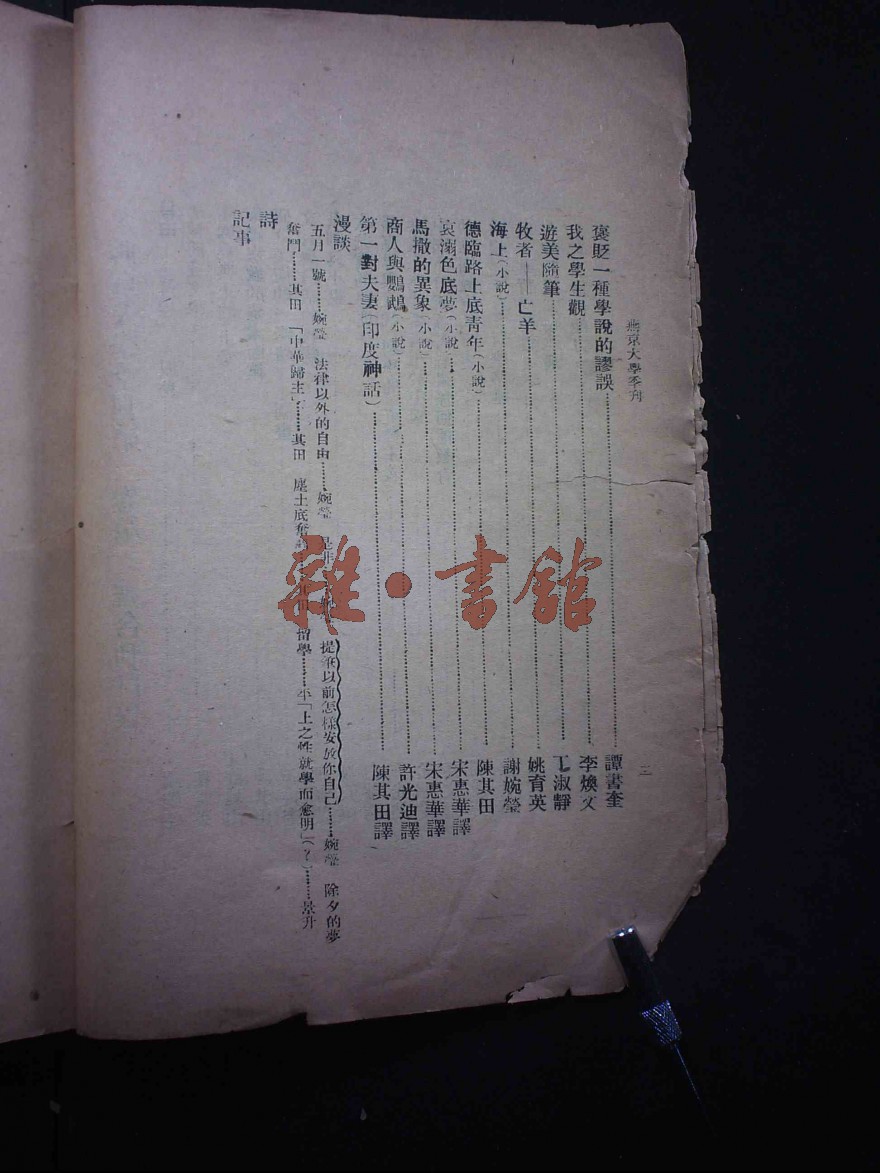 燕京大學季刊
二
褒貶一種學說的謬誤 譚書奎
我之學生觀 李煥文
遊美隨筆 丁淑靜
牧者——亡羊 姚育英
海上（小說） 謝婉瑩
德臨路上底青年（小說） 陳其田
哀溺色底夢（小說） 宋惠華譯
馬撒的異象（小說） 宋惠華譯
商人與鸚鵡（小說） 許光迪譯
第一對夫妻（印度神話） 陳其田譯
漫談
五月一號……婉瑩 法律以外的自由……婉瑩 是非 提筆以前怎樣安放你自己……婉瑩 除夕的夢
奮鬥……其田 「中華歸主」……其田 塵土底奮 留學……年「上之性就學而愈明」（？）……景升
詩
記事
雜·書館